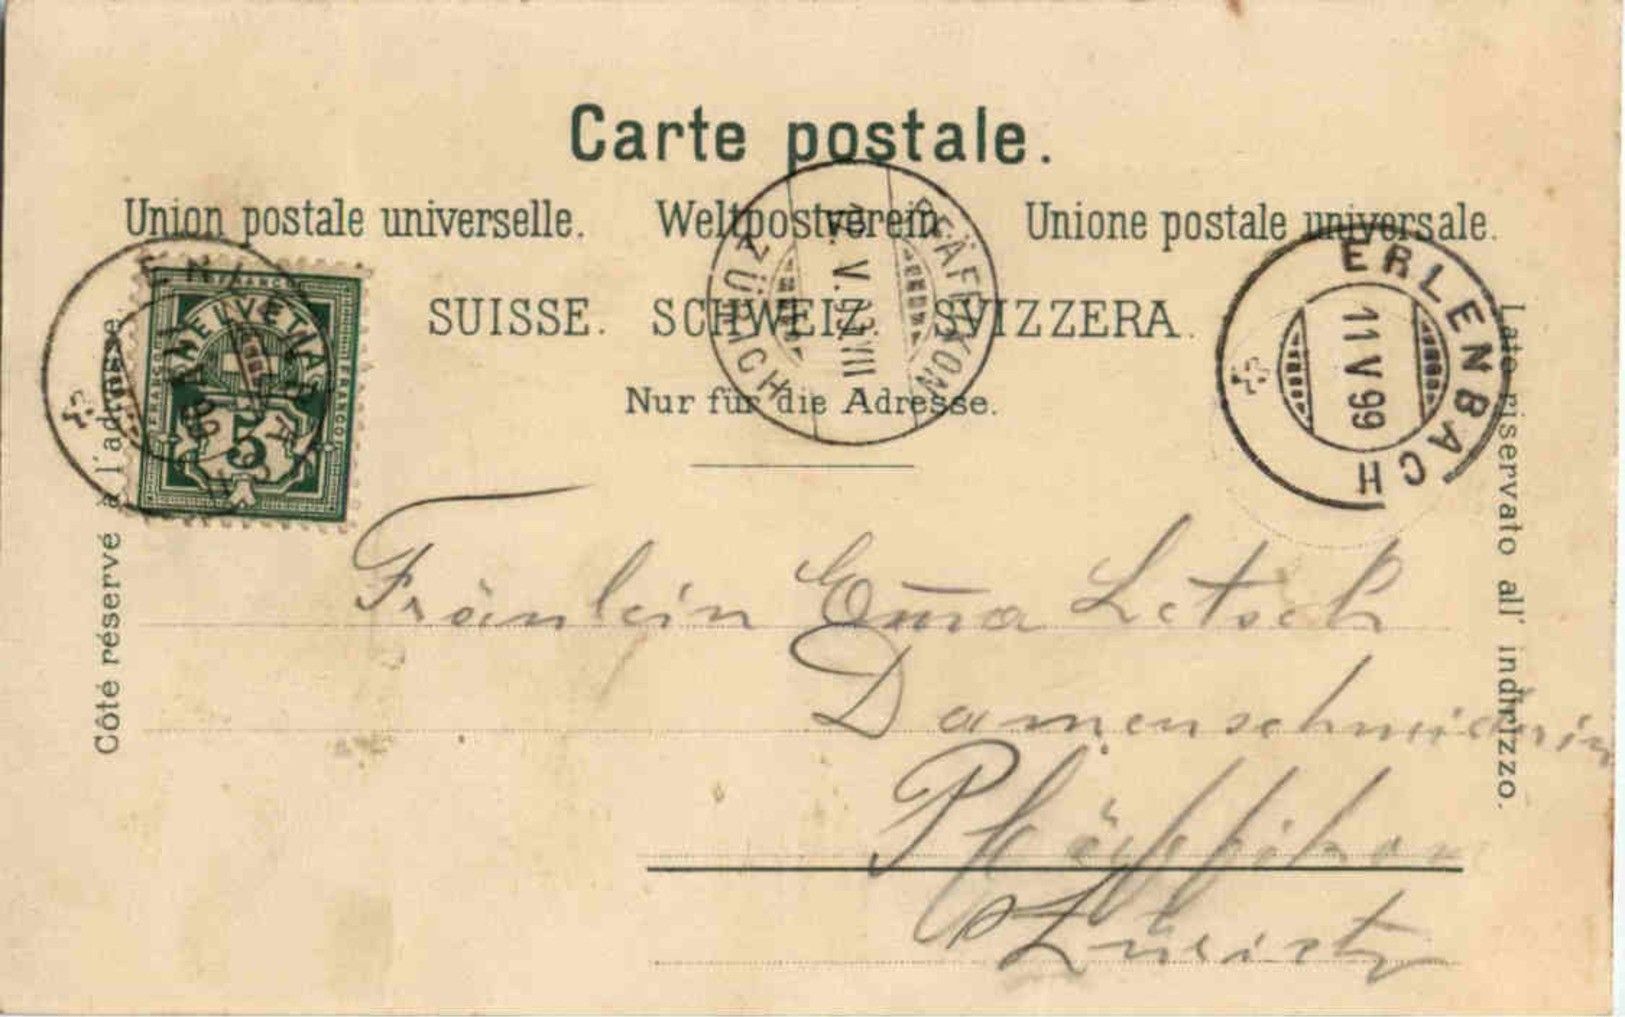 Carte postale.
Union postale universelle. Weltpostverein Unione postale universale.
SUISSE. SCHWEIZ. SVIZZERA.
Nur für die Adresse.
Côté réservé à l'adresse.
Lato riservato all' indirizzo.
FRANCO
HELVETIA
FRANCO
FRANCO
5
PFÄFFIKON
V.99.VIII
ZÜRICH
ERLENBACH
11 V 99
Fräulein Em̄a Letsch
Damenschneiderin
Pfäffikon
Zürich